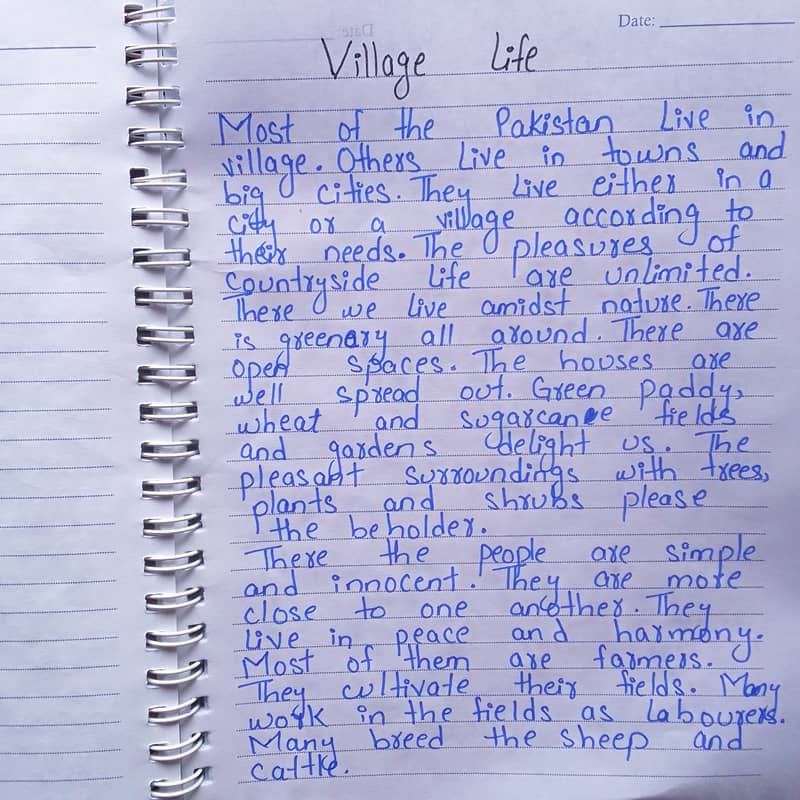 Date:
Village Life
Most of the Pakistan Live in
village. Others Live in towns and
big cities. They Live either in a
city or a village according to
their needs. The pleasures of
Countryside life are unlimited.
There we live amidst nature. There
is greenery all around. There are
open spaces. The houses are
well spread out. Green paddy,
wheat and sugarcane fields
and gardens delight us. The
pleasant surroundings with trees,
plants and shrubs please
the beholder.
There the people are simple
and innocent. They are more
close to one another. They
Live in peace and harmony.
Most of them are farmers.
They cultivate their fields. Many
work in the fields as Labourers.
Many breed the sheep and
cattke.